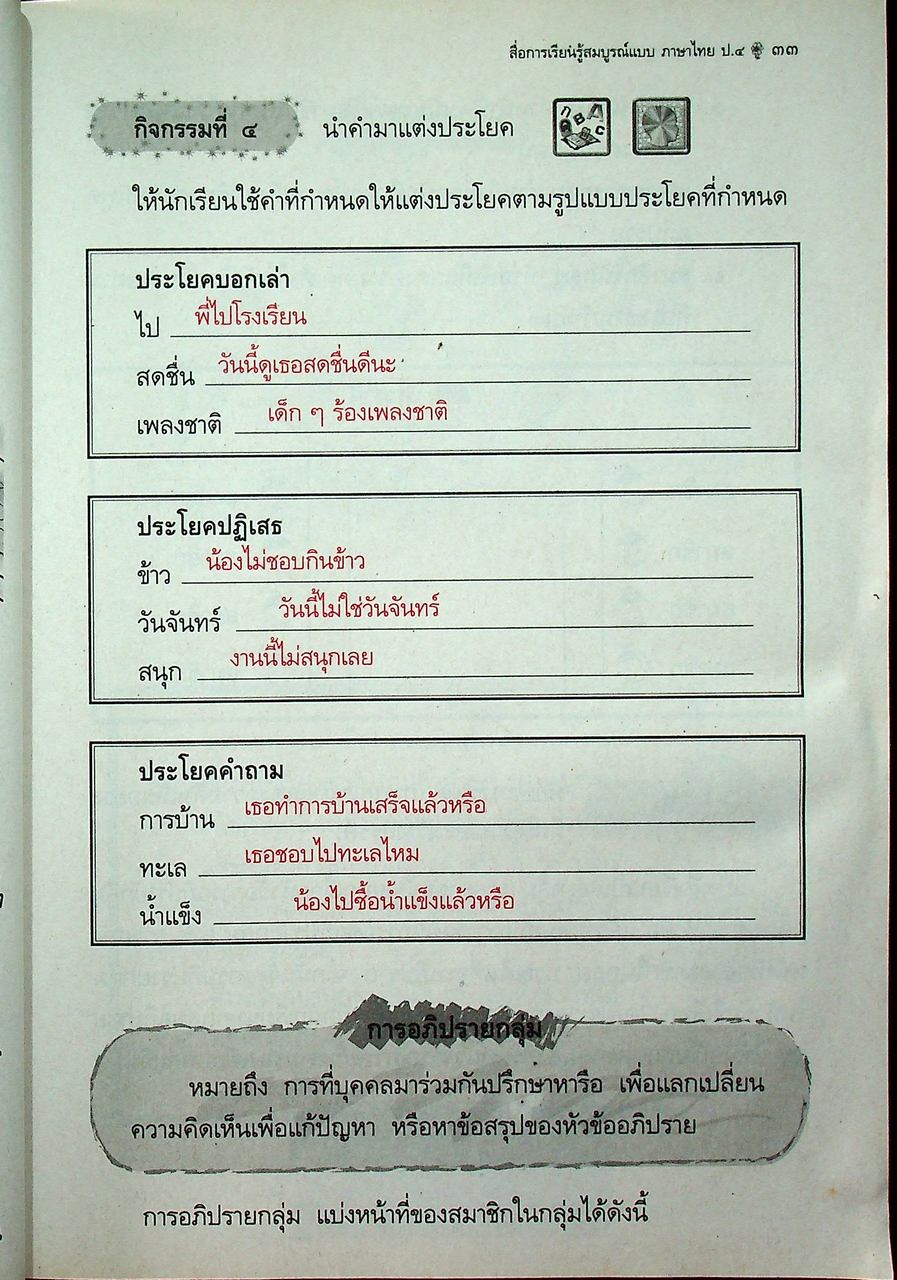 สื่อการเรียนรู้สมบูรณ์แบบ ภาษาไทย ป.๔ ๓๓
กิจกรรมที่ ๔ นำคำมาแต่งประโยค
ให้นักเรียนใช้คำที่กำหนดให้แต่งประโยคตามรูปแบบประโยคที่กำหนด
ประโยคบอกเล่า
ไป พี่ไปโรงเรียน
สดชื่น วันนี้ดูเธอสดชื่นดีนะ
เพลงชาติ เด็ก ๆ ร้องเพลงชาติ
ประโยคปฏิเสธ
ข้าว น้องไม่ชอบกินข้าว
วันจันทร์ วันนี้ไม่ใช่วันจันทร์
สนุก งานนี้ไม่สนุกเลย
ประโยคคำถาม
การบ้าน เธอทำการบ้านเสร็จแล้วหรือ
ทะเล เธอชอบไปทะเลไหม
น้ำแข็ง น้องไปซื้อน้ำแข็งแล้วหรือ
การอภิปรายกลุ่ม
หมายถึง การที่บุคคลมาร่วมกันปรึกษาหารือ เพื่อแลกเปลี่ยน
ความคิดเห็นเพื่อแก้ปัญหา หรือหาข้อสรุปของหัวข้ออภิปราย
การอภิปรายกลุ่ม แบ่งหน้าที่ของสมาชิกในกลุ่มได้ดังนี้